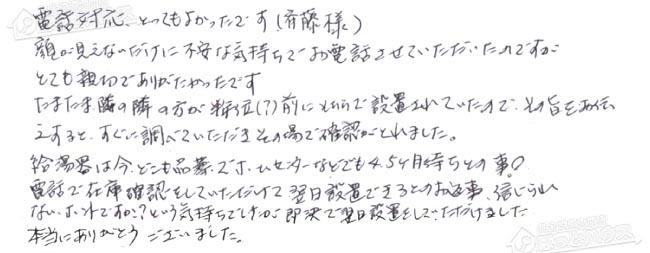 電話対応、とってもよかったです(斉藤様)
顔が見えないだけに不安な気持ちでお電話させていただいたのですが
とても親切でありがたかったです
たまたま隣の隣の方が 前にそちらで設置されていたので、その旨をお伝
えすると、すぐに調べていただきその場で確認がとれました。
給湯器は今、どこも品薄でホームセンターなどでも4.5ヶ月待ちとの事。
電話で在庫確認をしていただけて翌日設置できるとのお返事、信じられ
ない、ホントですか?という気持ちでしたが即決で翌日設置をしていただけました
本当にありがとうございました。